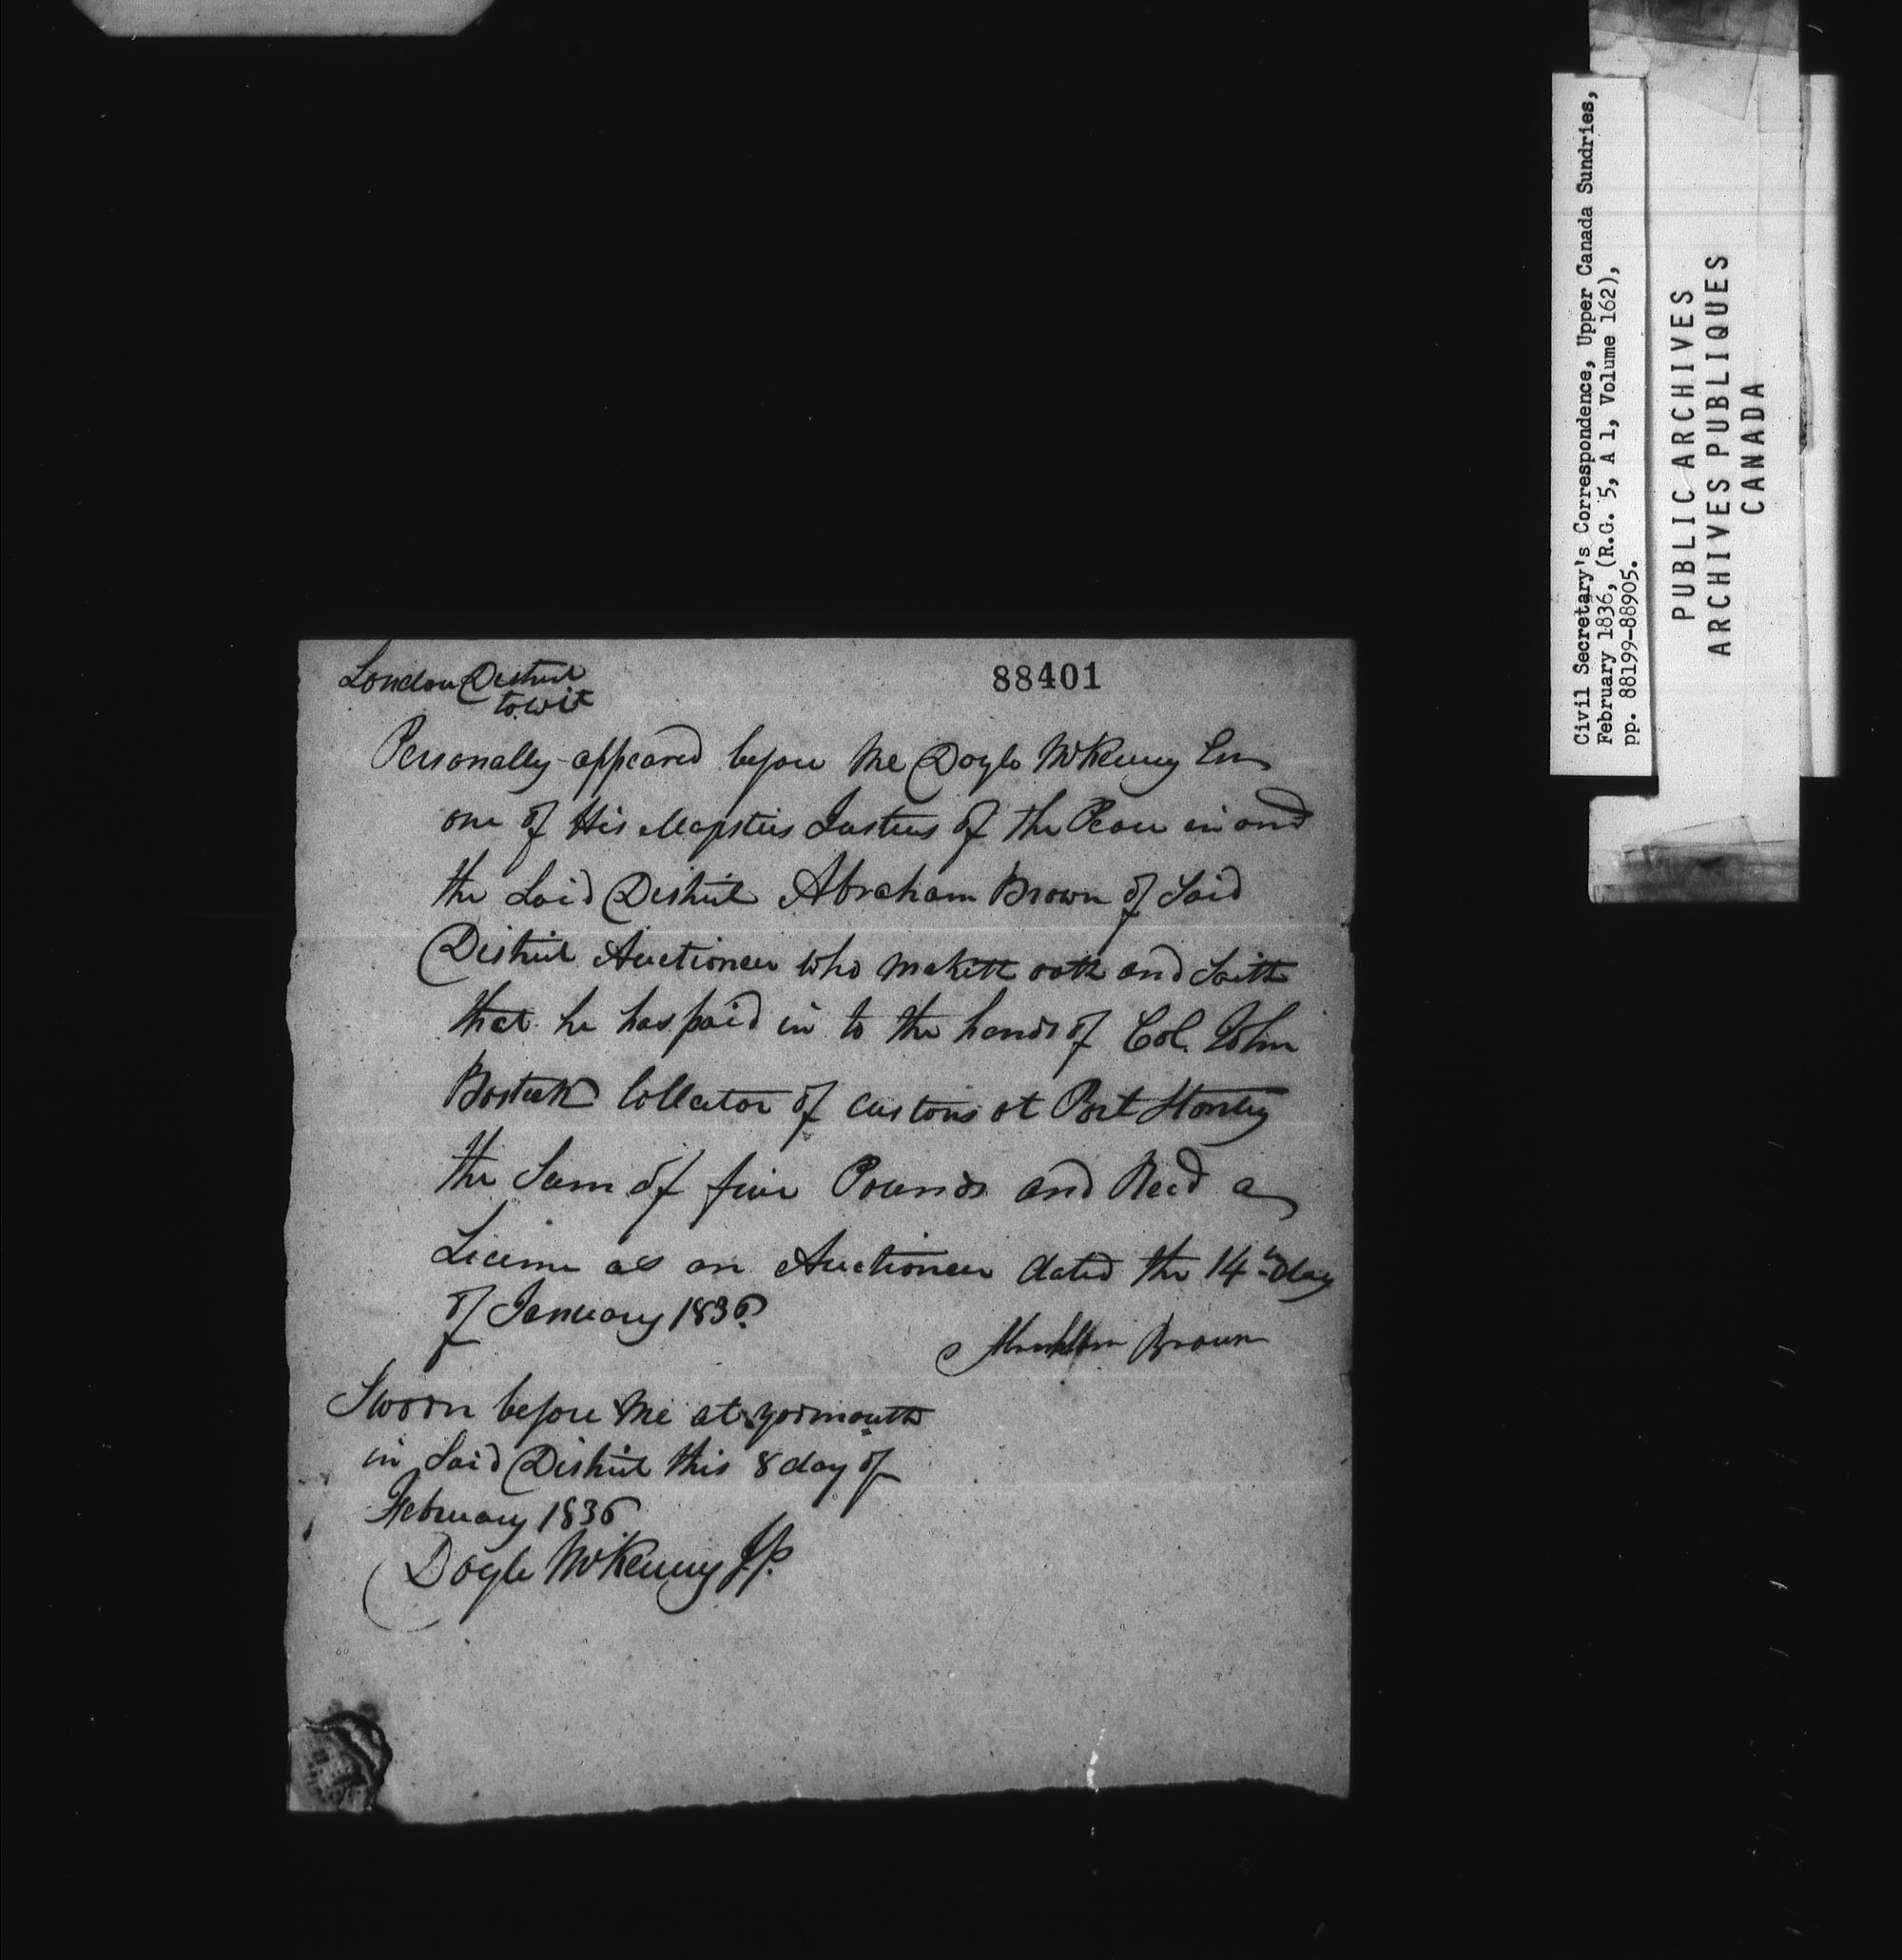 London District
to wit
88401
Personally appeared before me Doyle McKenny
one of His Majesties Justices of the Peace in and
the Said District Abraham Brown of Said
District Auctioneer who maketh oath and Saith
that he has paid in to the hands of Col. John
Bostwick Collector of customs at Port Stanley
the Sum of five Pounds and Recd a
License as an Auctioneer dated the 14th day
of January 1836
Abraham Brown
Sworn before me at yarmouth
in Said District this 8 day of
February 1836
Doyle McKenny J.P.
Civil Secretary's Correspondence, Upper Canada Sundries,
February 1836, (R.G. 5, A 1, Volume 162),
pp. 88199-88905.
PUBLIC ARCHIVES
ARCHIVES PUBLIQUES
CANADA